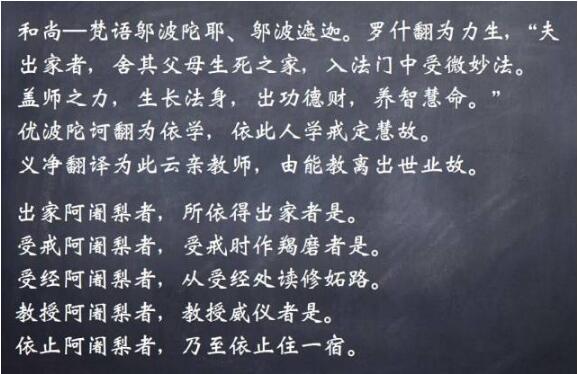 和尚—梵语邬波陀耶、邬波遮迦。罗什翻为力生，“夫
出家者，舍其父母生死之家，入法门中受微妙法。
盖师之力，生长法身，出功德财，养智慧命。”
优波陀诃翻为依学，依此人学戒定慧故。
义净翻译为此云亲教师，由能教离出世业故。
出家阿阇梨者，所依得出家者是。
受戒阿阇梨者，受戒时作羯磨者是。
受经阿阇梨者，从受经处读修妬路。
教授阿阇梨者，教授威仪者是。
依止阿阇梨者，乃至依止住一宿。